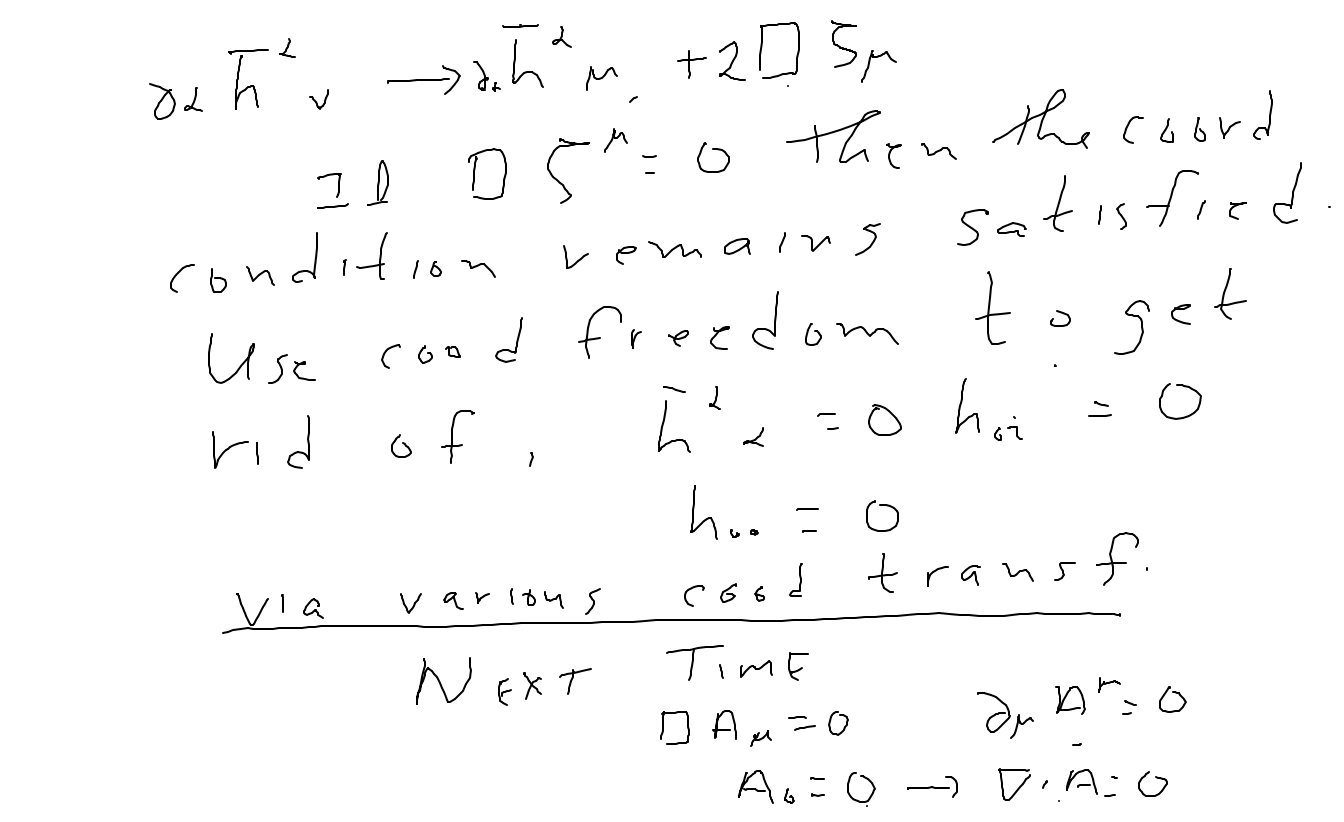 ∂α h̄^α ν → ∂α h̄^α μ, +2□ζμ
If □ζ^μ = 0 then the coord
condition remains satisfied.
Use cood freedom to get
rid of, h̄^α α = 0 h0i = 0
h00 = 0
via various cood transf.
NEXT TIME
□Aμ = 0 ∂μ A^μ = 0
A0 = 0 → ∇·A = 0